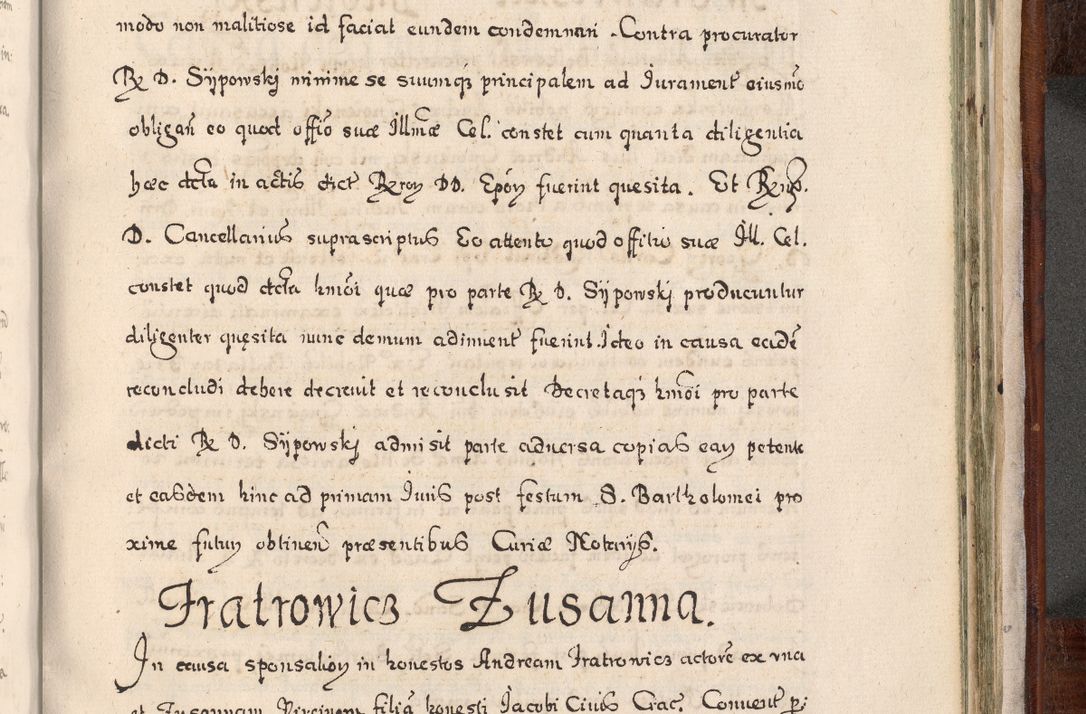 modo non malitiose id faciat eundem condemnari. Contra procurator
Rx D. Sijpowskj minime se suumqz principalem ad Jurament eiusmo
obligari eo quod offio suæ Illmæ Cel. constet cum quanta diligentia
hæc dcta in actis dict Rxroy DD. Epoy fuerint quesita. Et Rx
D. Cancellarius suprascriptus Eo attento quod offitio suæ Ill. Cel.
constet quod dcta hmoi quæ pro parte Rx D. Sijpowskj producuntur
diligenter quęsita nunc demum adinuent fuerint. Ideo in causa eadē
reconcludi debere decreuit et reconclusit Decretaqz hmoi pro parte
dicti Rx D. Sijpowskj admisit parte aduersa copias eay petente
et easdem hinc ad primam Juris post festum S. Bartholomei pro
xime futuy obtinen præsentibus Curiæ Notarijs.
Fratrowicz Zusanna.
In causa sponsalioy in honestos Andream Fratrowicz actorē ex vna
et Zusannam Virginem filiā honesti Jacobi Ciuis Crac. Conuent p.